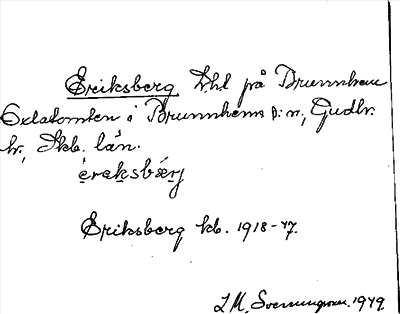 Eriksberg, Lht på Brunnhem
Exlatomten i Brunnhems s:n, Gudhr.
hr, Skb. län.
èreksbærj
Eriksberg kb. 1918-47.
I.M. Svenungsson. 1949.